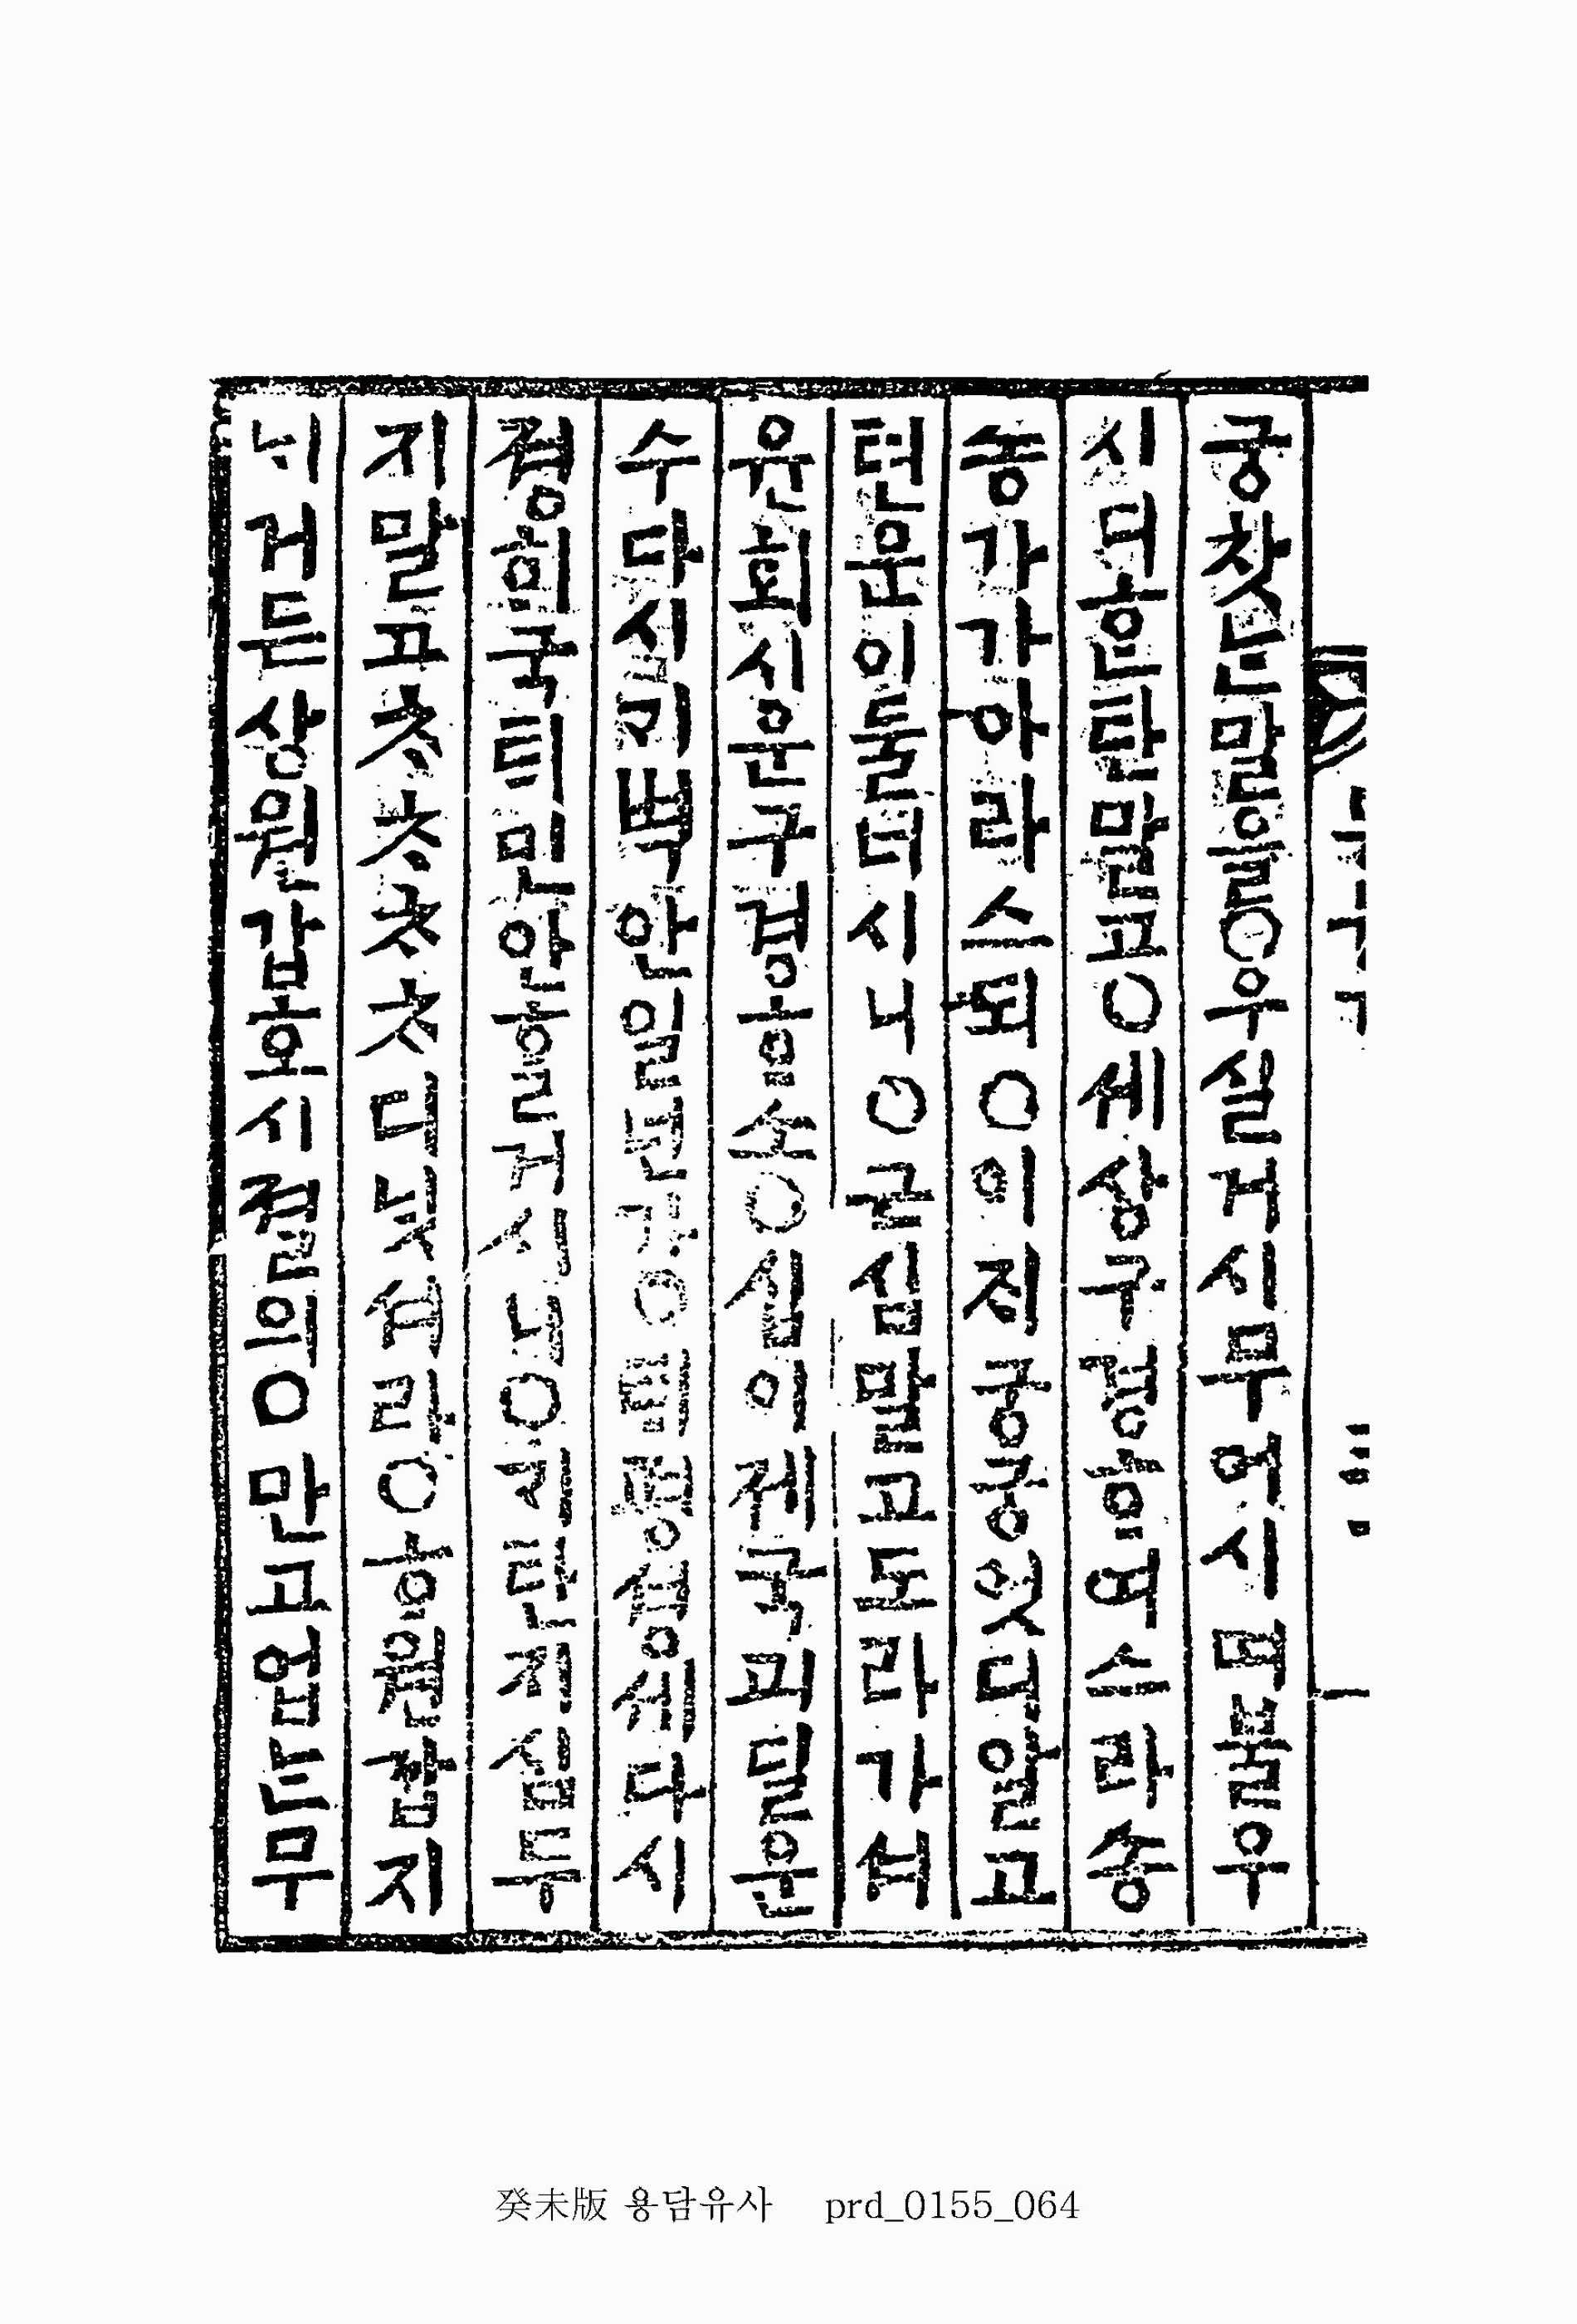 궁찻ᄂᆞᆫ말을○우실거시무어시며불우
시디ᄒᆞᆫ탄말고○셰상구경ᄒᆞ여스라송
송가가아라스되○이ᄌᆡ궁궁엇디알고
텬운이둘러시니○근심말고도라가셔
윤회시운구경ᄒᆞ소○십이졔국괴딜운
수다시ᄀᆡ벽안일년가○ᄐᆡ평셩셰다시
졍ᄒᆡ국ᄐᆡ민안ᄒᆞᆯ거시니○ᄀᆡ탄지심두
지말고ᄎᆞᄎᆞᄎᆞᄎᆞ디ᄂᆡᆺ셔라○ᄒᆞ원갑지
ᄂᆡ거든상원갑호시졀의○만고업ᄂᆞᆫ무
癸未版 용담유사 prd_0155_064